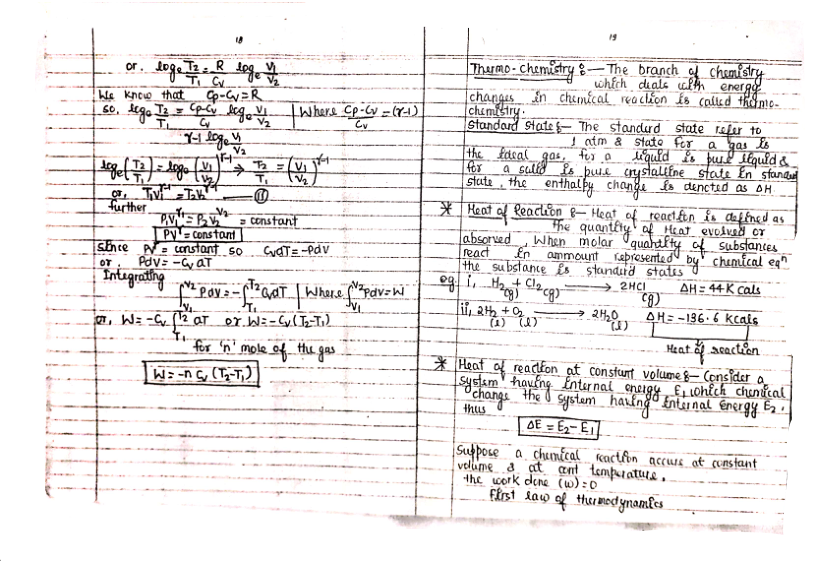 18
or. logₑ T₂/T₁ = R/Cv logₑ V₁/V₂
We know that Cp-Cv=R
so, logₑ T₂/T₁ = Cp-Cv/Cv logₑ V₁/V₂ | Where Cp-Cv/Cv = (γ-1)
γ-1 logₑ V₁/V₂
logₑ (T₂/T₁) = logₑ (V₁/V₂)^γ-1 → T₂/T₁ = (V₁/V₂)^γ-1
or, T₁V₁^γ-1 = T₂V₂^γ-1 — (ii)
further
P₁V₁^γ = P₂V₂^γ = constant
PV^γ = constant
since PV^γ = constant so CvdT = -PdV
or. PdV = -Cv dT
Integrating
∫V₁^V₂ PdV = -∫T₁^T₂ CvdT | Where ∫V₁^V₂ PdV = W
or, W = -Cv ∫T₁^T₂ dT or W = -Cv (T₂-T₁)
for 'n' mole of the gas
W = -n Cv (T₂-T₁)
19
Thermo-Chemistry :— The branch of chemistry
which deals with energy
changes in chemical reaction is called thermo-
chemistry.
Standard state :— The standard state refer to
1 atm & state for a gas is
the ideal gas, for a liquid is pure liquid &
for a solid is pure crystalline state in standard
state, the enthalpy change is denoted as ΔH
* Heat of Reaction :— Heat of reaction is defined as
the quantity of Heat evolved or
absorved When molar quantity of substances
react in ammount represented by chemical eqⁿ
the substance is standard states
eg i, H₂ (g) + Cl₂ (g) → 2HCl (g) ΔH = 44 K cals
ii, 2H₂ (l) + O₂ (l) → 2H₂O (l) ΔH = -136.6 kcals
Heat of reaction
* Heat of reaction at constant volume :— Consider a
system having internal energy E₁ which chemical
change the system having internal energy E₂.
thus
ΔE = E₂ - E₁
Suppose a chemical reaction accurs at constant
volume & at temperature.
the work done (w) = 0
First law of thermodynamics